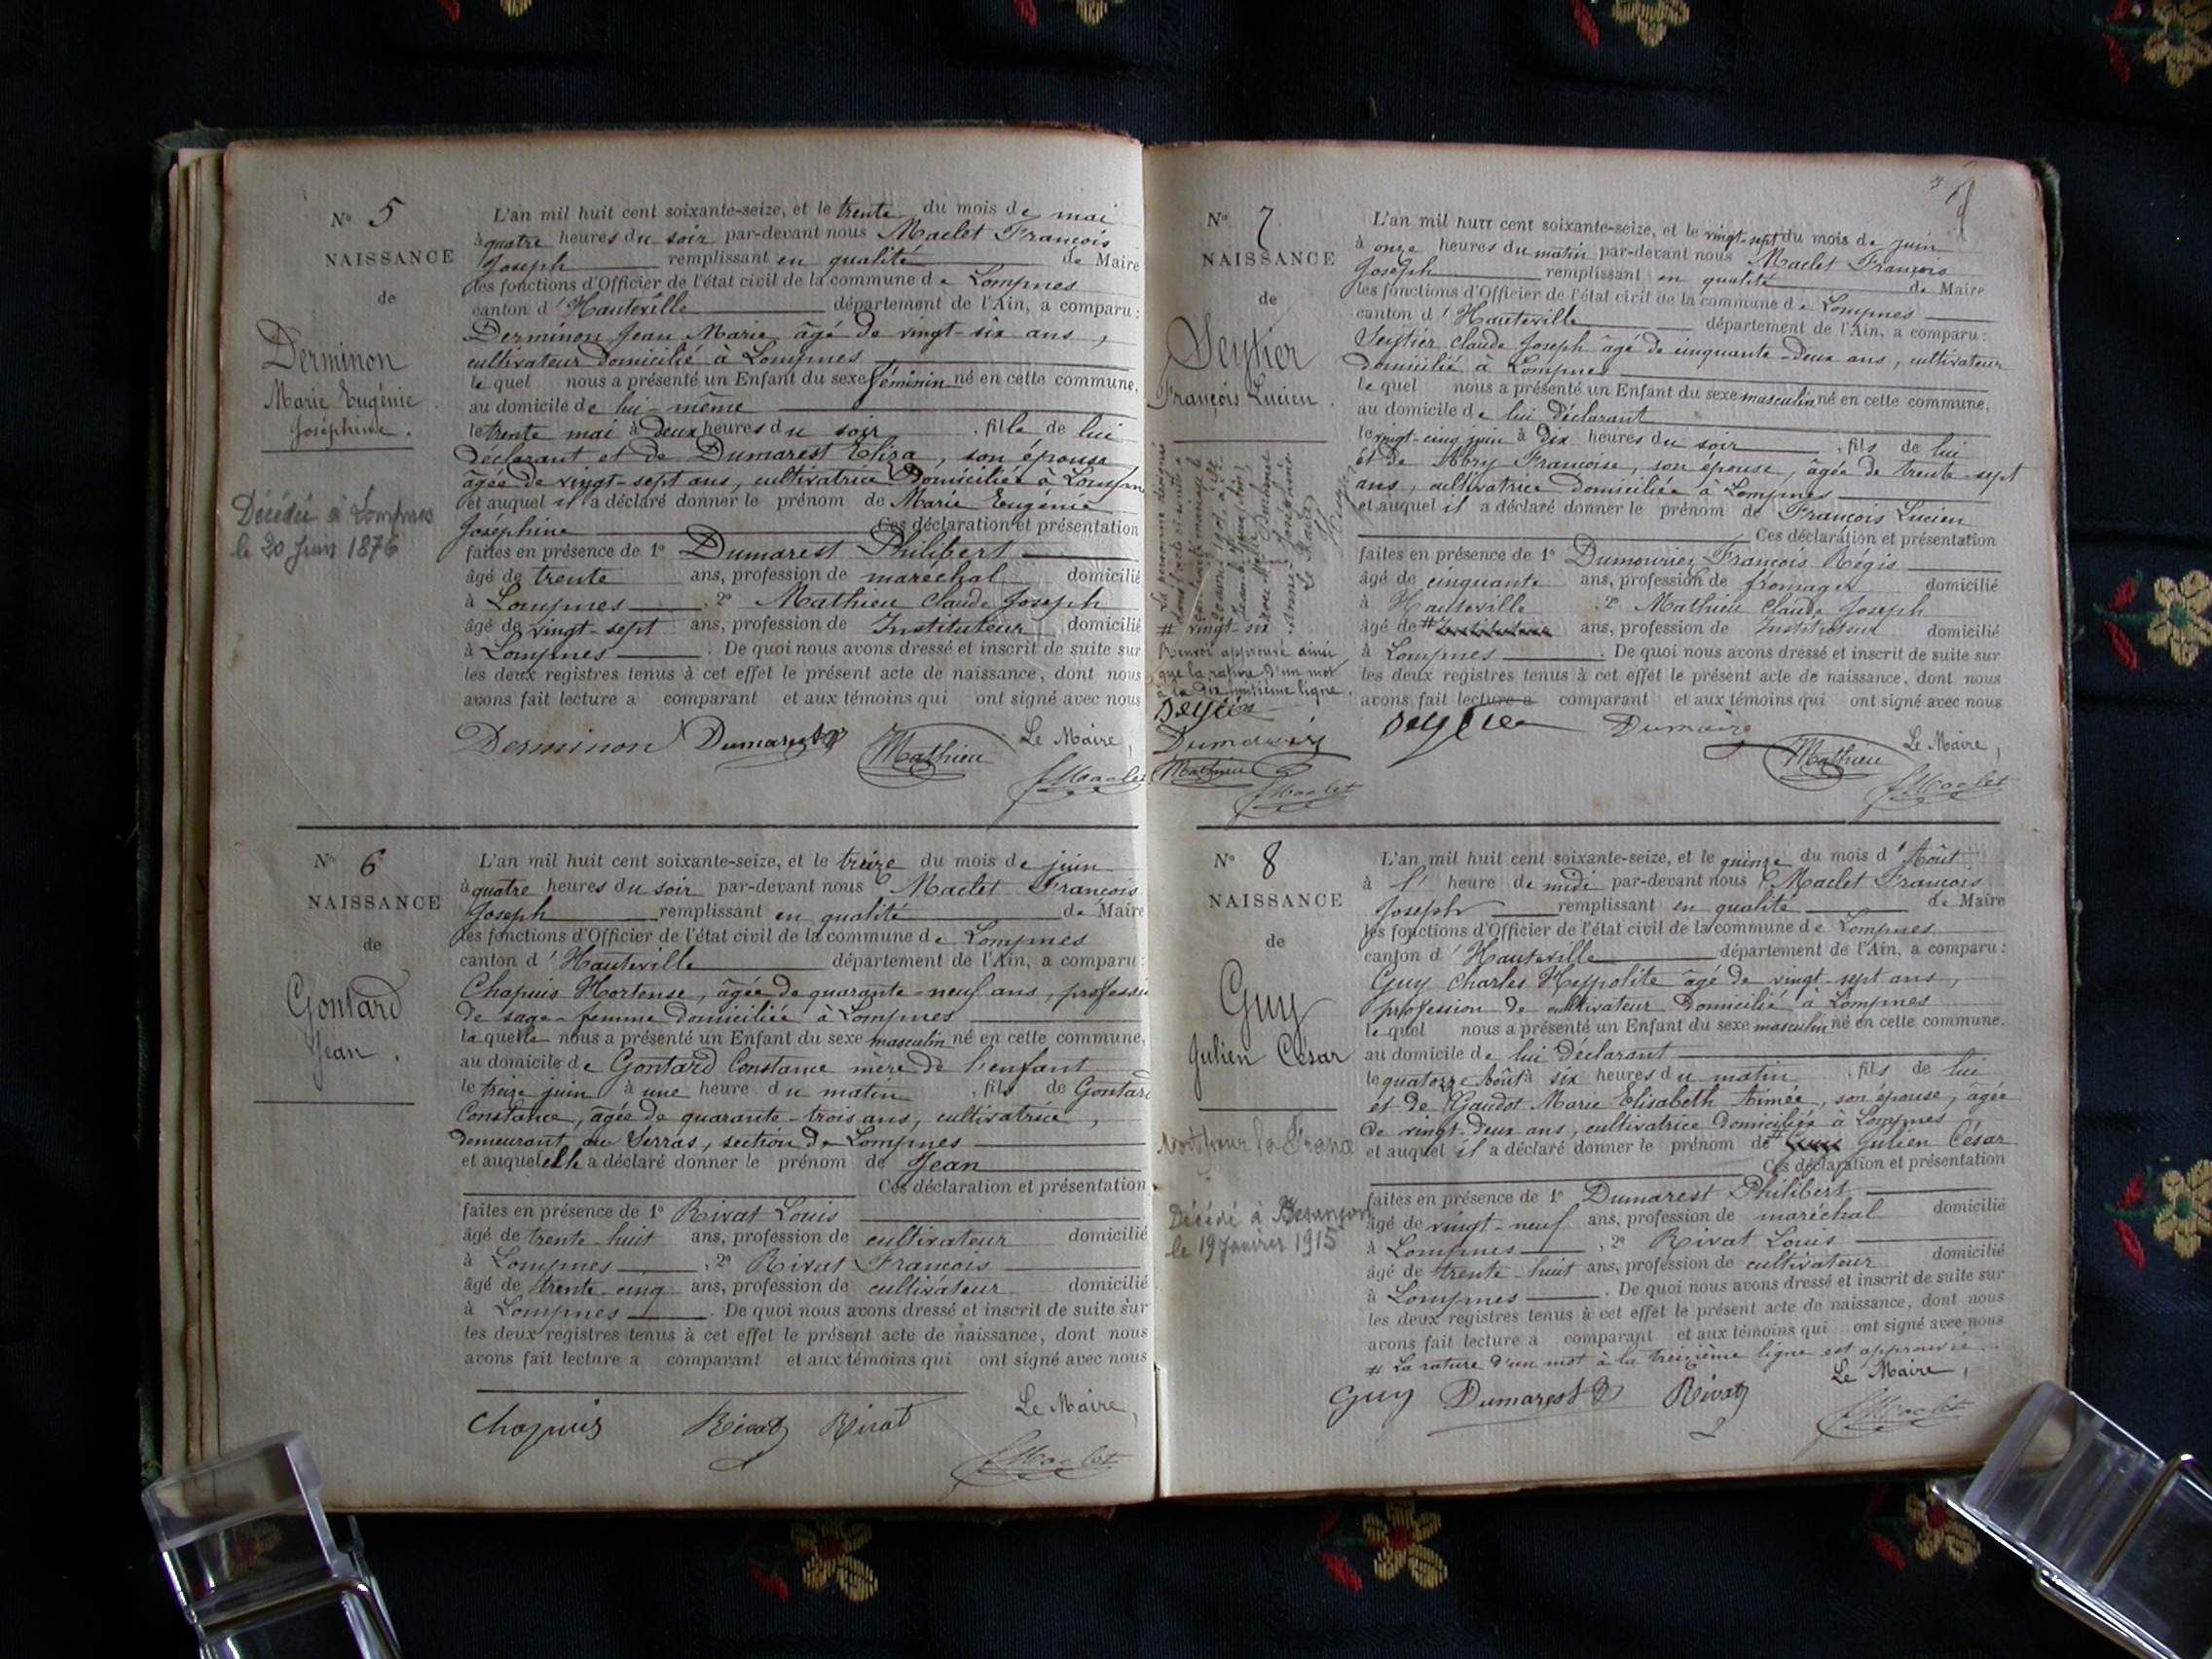 N° 5
NAISSANCE
de
Derminon
Marie Eugénie
Joséphine.
Décédée à Lompnes
le 20 Juin 1876
L'an mil huit cent soixante-seize, et le trente du mois de mai
à quatre heures du soir par-devant nous Maclet François
Joseph remplissant en qualité de Maire
les fonctions d'Officier de l'état civil de la commune de Lompnes
canton d'Hauteville département de l'Ain, a comparu :
Derminon Jean Marie âgé de vingt-six ans,
cultivateur domicilié à Lompnes
lequel nous a présenté un Enfant du sexe féminin né en cette commune,
au domicile de lui-même
le trente mai à deux heures du soir, fille de lui
déclarant et de Dumarest Eliza, son épouse
âgée de vingt-sept ans, cultivatrice domiciliée à Lompnes
et auquel il a déclaré donner le prénom de Marie Eugénie
Joséphine Ces déclaration et présentation
faites en présence de 1° Dumarest Philibert
âgé de trente ans, profession de maréchal domicilié
à Lompnes, 2° Mathieu Claude Joseph
âgé de vingt-sept ans, profession de Instituteur domicilié
à Lompnes. De quoi nous avons dressé et inscrit de suite sur
les deux registres tenus à cet effet le présent acte de naissance, dont nous
avons fait lecture a comparant et aux témoins qui ont signé avec nous
Derminon Dumarest Mathieu Le Maire,
f Maclet
N° 6
NAISSANCE
de
Gontard
Jean.
L'an mil huit cent soixante-seize, et le treize du mois de juin
à quatre heures du soir par-devant nous Maclet François
Joseph remplissant en qualité de Maire
les fonctions d'Officier de l'état civil de la commune de Lompnes
canton d'Hauteville département de l'Ain, a comparu :
Chapuis Hortense, âgée de quarante-neuf ans, professi
de sage-femme domiciliée à Lompnes
laquelle nous a présenté un Enfant du sexe masculin né en cette commune,
au domicile de Gontard Constance mère de l'enfant
le treize juin à une heure du matin, fils de Gontard
Constance, âgée de quarante-trois ans, cultivatrice,
demeurant au Serras, section de Lompnes
et auquel elle a déclaré donner le prénom de Jean
Ces déclaration et présentation
faites en présence de 1° Rivat Louis
âgé de trente-huit ans, profession de cultivateur domicilié
à Lompnes, 2° Rivat François
âgé de trente-cinq ans, profession de cultivateur domicilié
à Lompnes. De quoi nous avons dressé et inscrit de suite sur
les deux registres tenus à cet effet le présent acte de naissance, dont nous
avons fait lecture a comparant et aux témoins qui ont signé avec nous
Chapuis Rivat Rivat Le Maire,
f Maclet
N° 7
NAISSANCE
de
Seytier
François Lucien.
# vingt-six
Renvoi approuvé ainsi
que la rature d'un mot
à la dix huitième ligne.
Mathieu
f Maclet
L'an mil huit cent soixante-seize, et le vingt-sept du mois de juin
à onze heures du matin par-devant nous Maclet François
Joseph remplissant en qualité de Maire
les fonctions d'Officier de l'état civil de la commune de Lompnes
canton d'Hauteville département de l'Ain, a comparu :
Seytier Claude Joseph âgé de cinquante-deux ans, cultivateur
domicilié à Lompnes
lequel nous a présenté un Enfant du sexe masculin né en cette commune,
au domicile de lui déclarant
le vingt-cinq juin à dix heures du soir, fils de lui
et de Abry Françoise, son épouse, âgée de trente-sept
ans, cultivatrice domiciliée à Lompnes
et auquel il a déclaré donner le prénom de François Lucien
Ces déclaration et présentation
faites en présence de 1° Dumourier François Régis
âgé de cinquante ans, profession de fromager domicilié
à Hauteville, 2° Mathieu Claude Joseph
âgé de # Instituteur ans, profession de Instituteur domicilié
à Lompnes. De quoi nous avons dressé et inscrit de suite sur
les deux registres tenus à cet effet le présent acte de naissance, dont nous
avons fait lecture a comparant et aux témoins qui ont signé avec nous
Mathieu Le Maire,
f Maclet
N° 8
NAISSANCE
de
Guy
Julien César
Mort pour la France
Décédé à Besançon
le 19 Janvier 1915
L'an mil huit cent soixante-seize, et le quinze du mois d'Août
à l' heure de midi par-devant nous Maclet François
Joseph remplissant en qualité de Maire
les fonctions d'Officier de l'état civil de la commune de Lompnes
canton d'Hauteville département de l'Ain, a comparu :
Guy Charles Hyppolite âgé de vingt-sept ans,
profession de cultivateur domicilié à Lompnes
lequel nous a présenté un Enfant du sexe masculin né en cette commune.
au domicile de lui déclarant
le quatorze Août à six heures du matin, fils de lui
et de Gaudot Marie Elisabeth Aimée, son épouse, âgée
de vingt-deux ans, cultivatrice domiciliée à Lompnes
et auquel il a déclaré donner le prénom de # Julien César
Ces déclaration et présentation
faites en présence de 1° Dumarest Philibert
âgé de vingt-neuf ans, profession de maréchal domicilié
à Lompnes, 2° Rivat Louis
âgé de trente-huit ans, profession de cultivateur domicilié
à Lompnes. De quoi nous avons dressé et inscrit de suite sur
les deux registres tenus à cet effet le présent acte de naissance, dont nous
avons fait lecture a comparant et aux témoins qui ont signé avec nous
# La rature d'un mot à la treizième ligne est approuvée.
Guy Dumarest Rivat Le Maire,
f Maclet